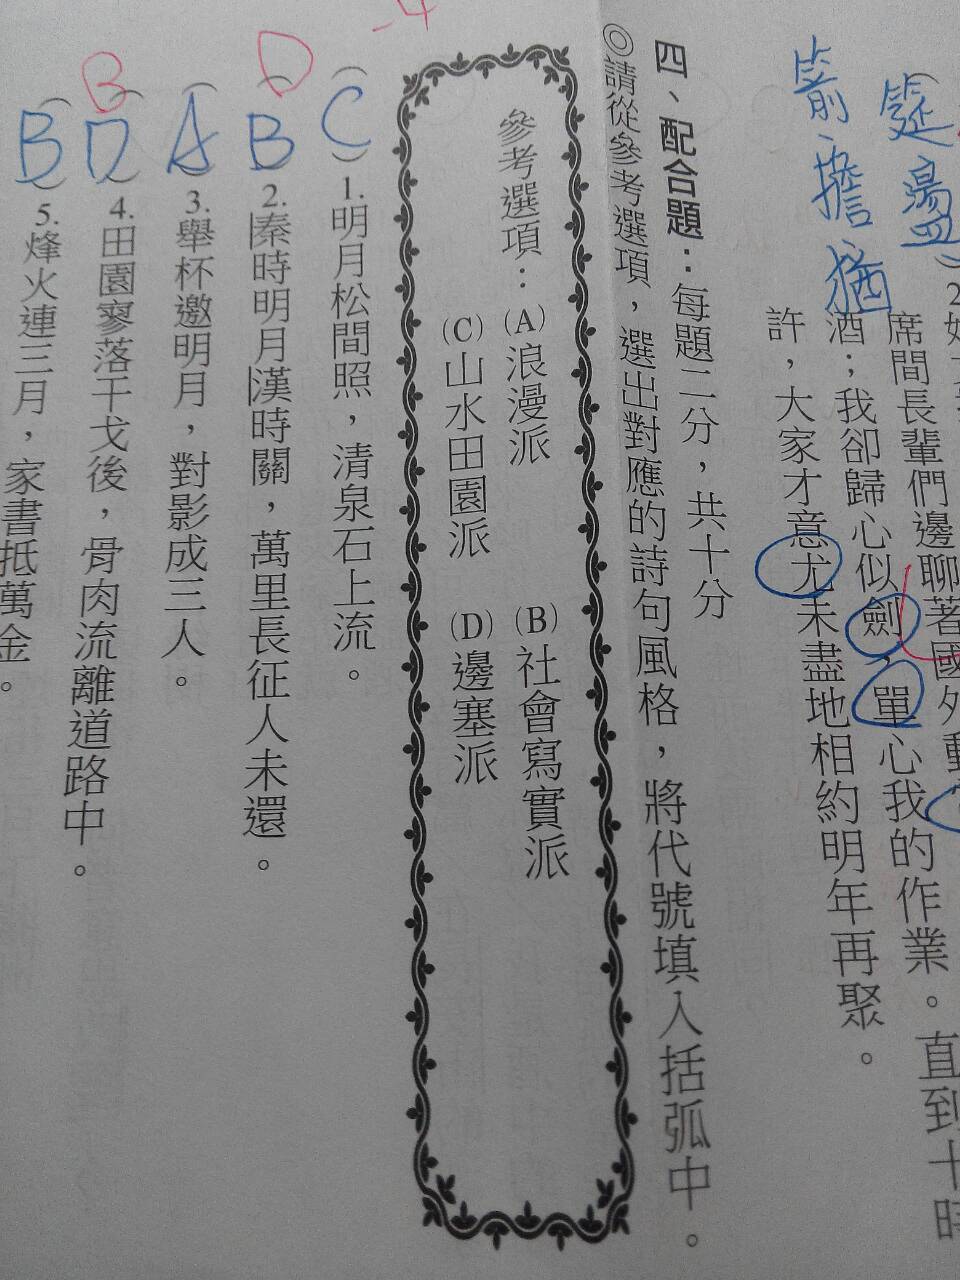 筵盪
箭、擔猶
2.
席間長輩們邊聊著國外動
酒；我卻歸心似劍，單心我的作業。直到十時
許，大家才意尤未盡地相約明年再聚。
四、配合題：每題二分，共十分
◎請從參考選項，選出對應的詩句風格，將代號填入括弧中。
-4
參考選項：(A)浪漫派 (B)社會寫實派
(C)山水田園派 (D)邊塞派
(C)1.明月松間照，清泉石上流。
D
(B)2.秦時明月漢時關，萬里長征人未還。
(A)3.舉杯邀明月，對影成三人。
B
(D)4.田園寥落干戈後，骨肉流離道路中。
(B)5.烽火連三月，家書抵萬金。